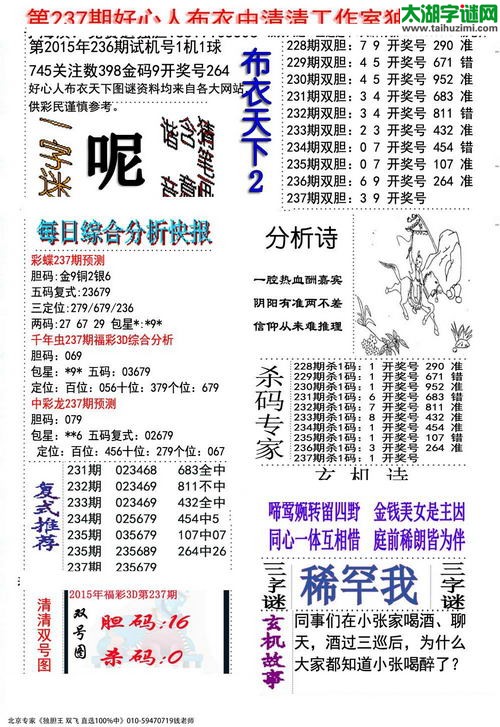 第237期好心人布衣中清清工作室
太湖字谜网
www.taihuzimi.com
第2015年236期试机号1机1球
745关注数398金码9开奖号264
好心人布衣天下图谜资料均来自各大网站
供彩民谨慎参考。
一字迷
呢
布衣天下2
228期双胆：79 开奖号 290 准
229期双胆：34 开奖号 671 错
230期双胆：45 开奖号 952 准
231期双胆：34 开奖号 683 准
232期双胆：34 开奖号 811 错
233期双胆：23 开奖号 432 准
234期双胆：07 开奖号 454 错
235期双胆：07 开奖号 107 准
236期双胆：69 开奖号 264 准
237期双胆：39 开奖号
每日综合分析快报
彩蝶237期预测
胆码:金9铜2银6
五码复式:23679
三定位:279/679/236
两码：27 67 29 包星*:*9*
千年虫237期福彩3D综合分析
胆码：069
包星：*9* 五码：03679
定位：百位：056十位：379个位：679
中彩龙237期预测
胆码：079
包星：**6 五码复式：02679
定位：百位：456十位：127个位：679
分析诗
一腔热血酬嘉宾
阴阳有准两不差
信仰从来难推理
杀码专家
228期杀1码：1 开奖号 290 准
229期杀1码：1 开奖号 671 错
230期杀1码：1 开奖号 952 准
231期杀1码：6 开奖号 683 错
232期杀1码：7 开奖号 811 准
233期杀1码：8 开奖号 432 准
234期杀1码：4 开奖号 454 错
235期杀1码：1 开奖号 107 错
236期杀1码：3 开奖号 264 准
237期杀1码：9 开奖号
玄机诗
啼莺婉转留四野 金钱美女是主因
同心一体互相惜 庭前稀朗皆为伴
复式推荐
231期 023468 683全中
232期 024679 811不中
233期 023469 432全中
234期 025679 454中5
235期 035679 107中07
235期 235689 264中26
237期 035679
清清双号图
2015年福彩3D第237期
双号图
胆码:16
杀码:0
三字谜
稀罕我
三字谜
玄机故事
同事们在小张家喝酒、聊
天，酒过三巡后，为什么
大家都知道小张喝醉了？
北京专家《独胆王 双飞 直选100%中》010-59470719钱老师